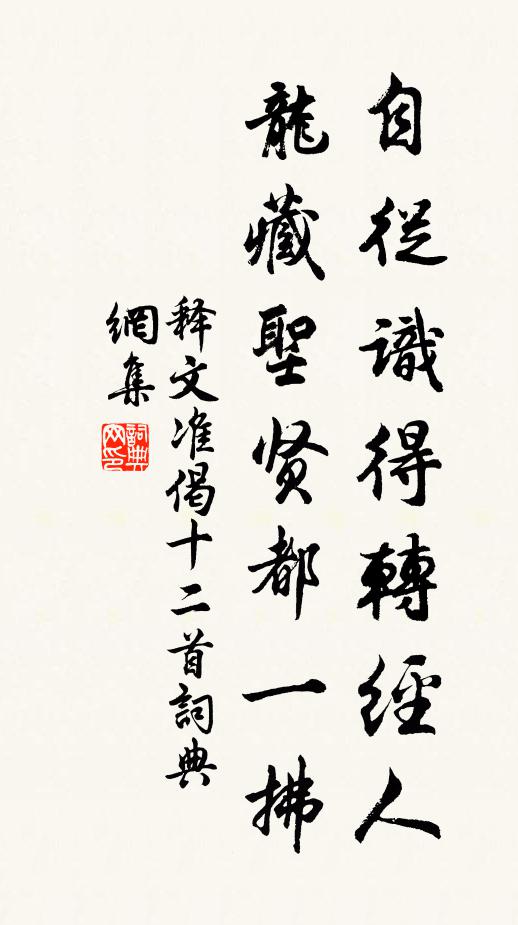 自從識得轉經人
龍藏聖贤都一拂
释文准偈十二首詞典
網集
詞典
网印